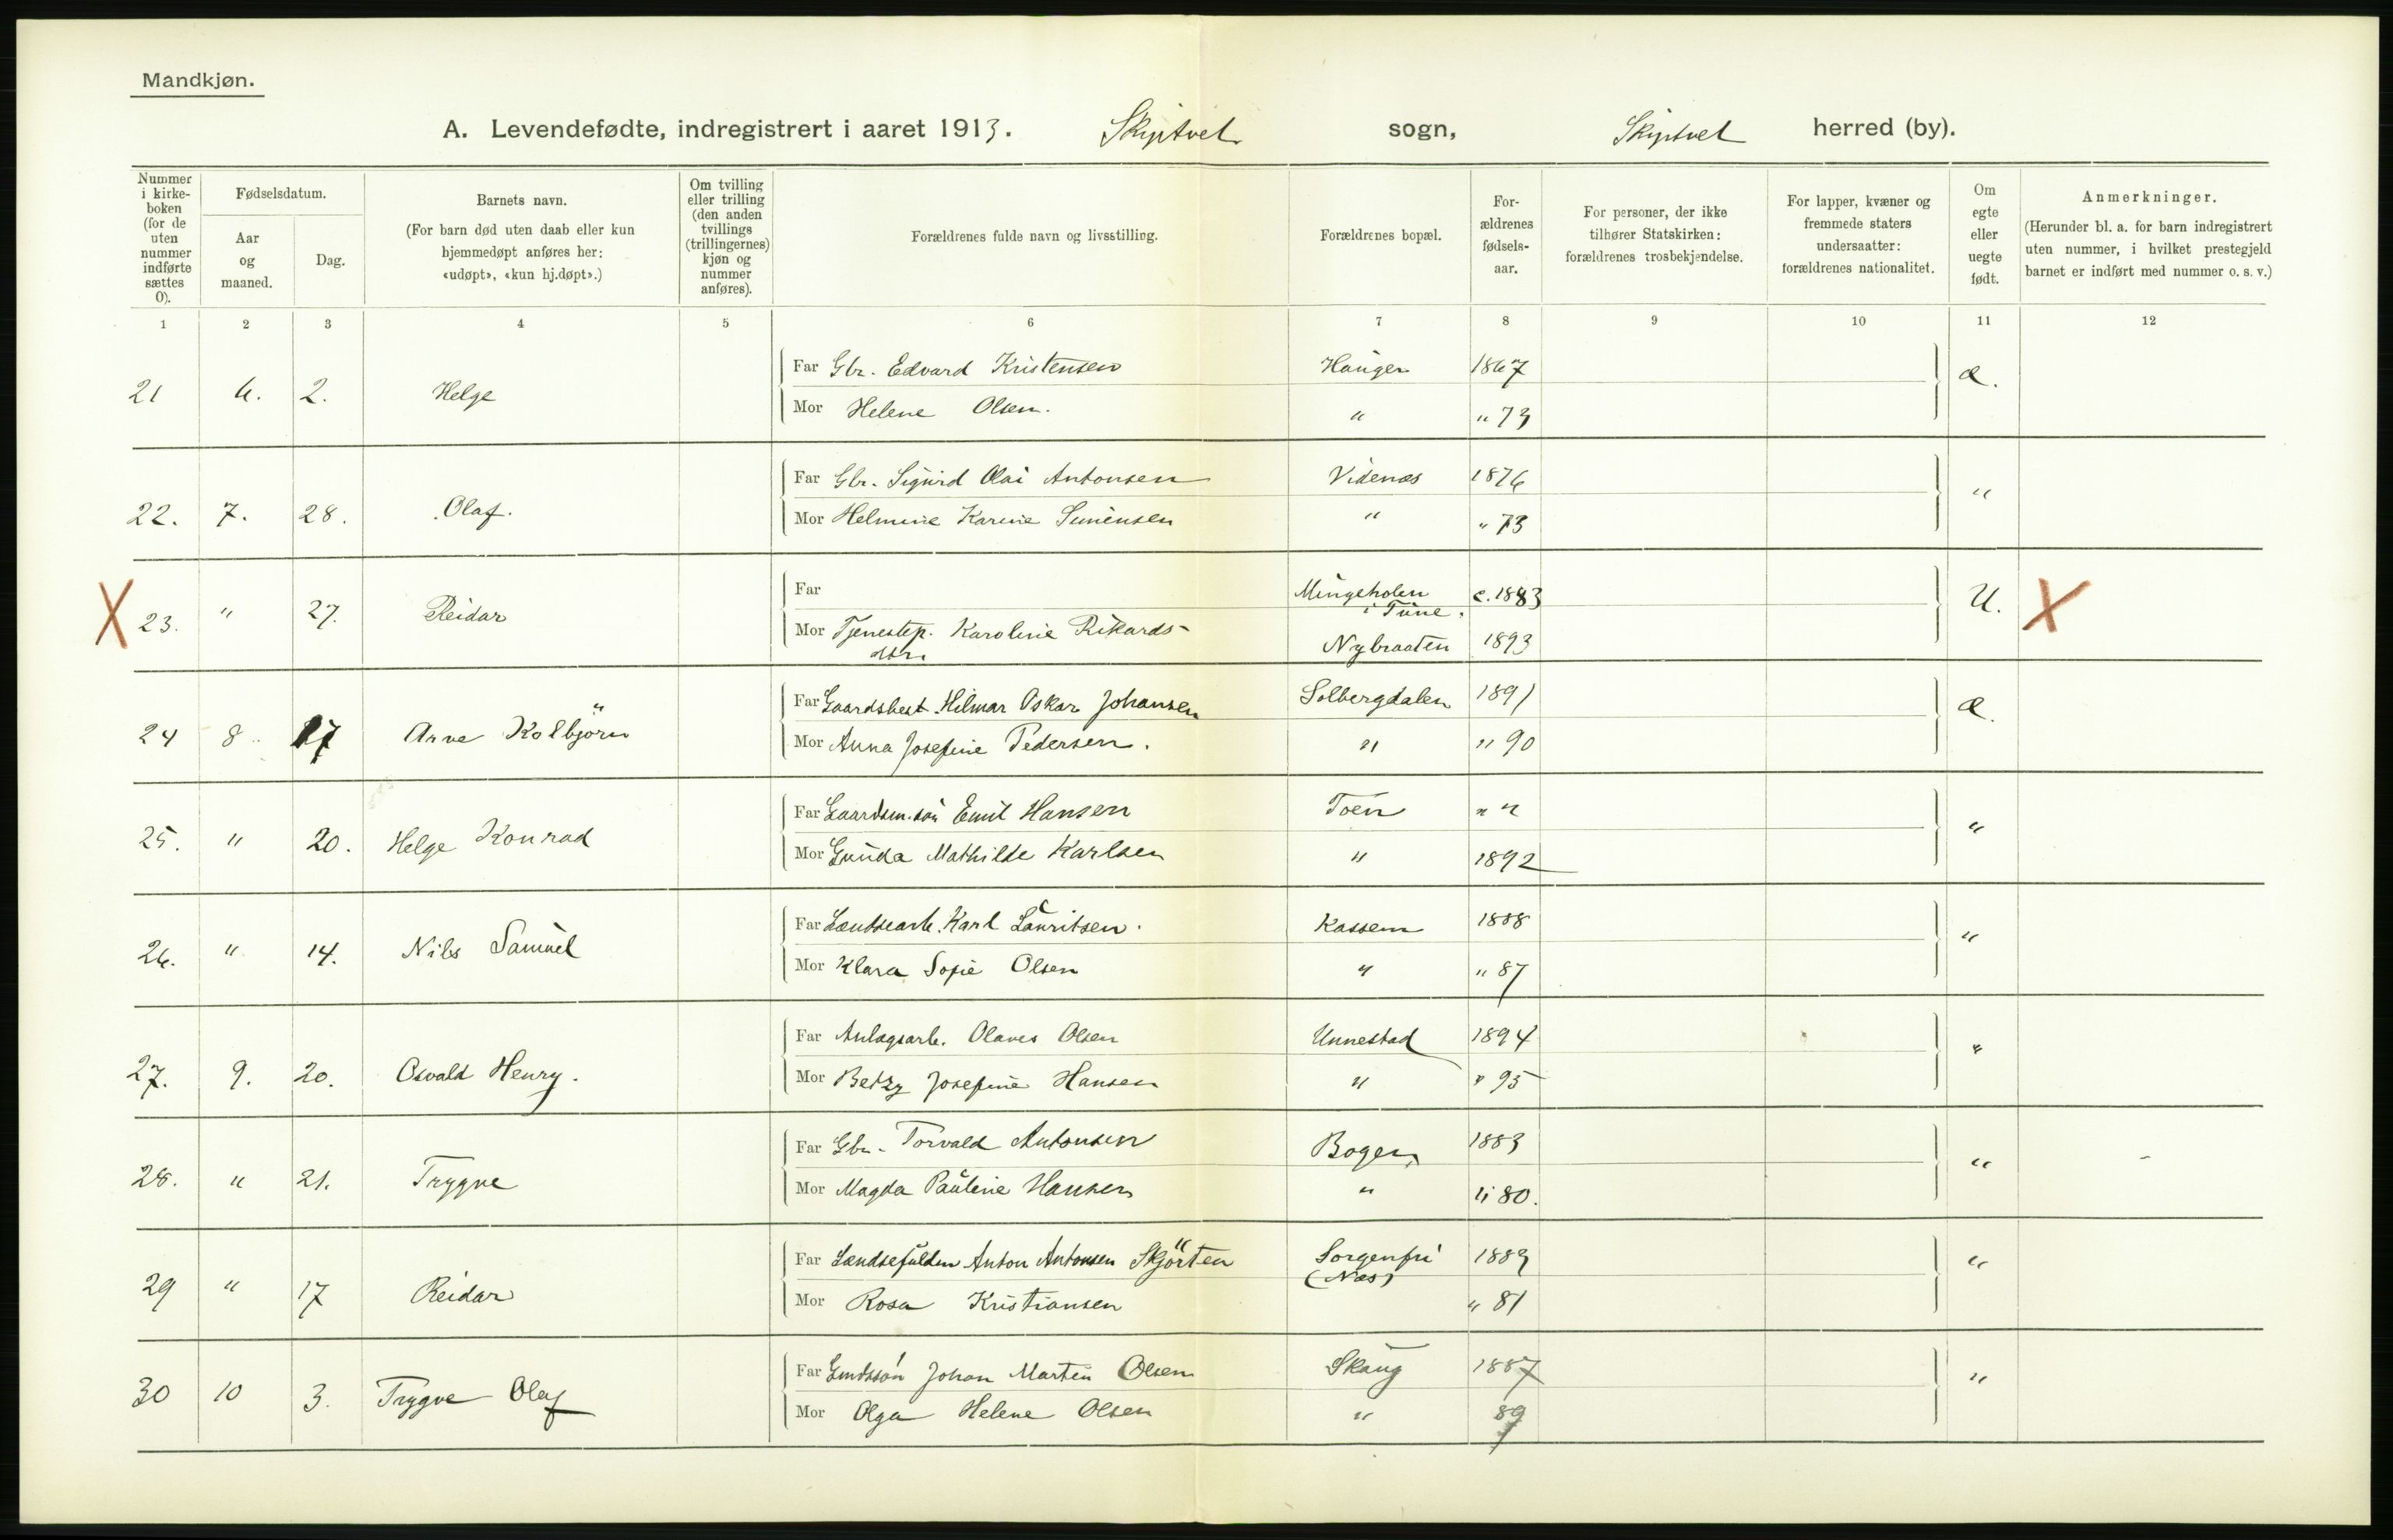 Mandkjøn.
A. Levendefødte, indregistrert i aaret 1913. Skiptvet sogn, Skiptvet herred (by).
Nummer i kirke-boken (for de uten nummer indførte sættes 0).
Fødselsdatum.
Aar og maaned.
Dag.
Barnets navn.
(For barn død uten daab eller kun hjemmedøpt anføres her: «udøpt», «kun hj.døpt».)
Om tvilling eller trilling (den anden tvillings (trillingernes) kjøn og nummer anføres).
Forældrenes fulde navn og livsstilling.
Forældrenes bopæl.
For-ældrenes fødsels-aar.
For personer, der ikke tilhører Statskirken: forældrenes trosbekjendelse.
For lapper, kvæner og fremmede staters undersaatter: forældrenes nationalitet.
Om egte eller uegte født.
Anmerkninger.
(Herunder bl. a. for barn indregistrert uten nummer, i hvilket prestegjeld barnet er indført med nummer o. s. v.)
1 2 3 4 5 6 7 8 9 10 11 12
Far Gbr. Edvard Kristensen Haugen 1867
21 6. 2. Helge æ.
Mor Helene Olsen. " " 73
Far Gbr. Sigurd Olai Antonsen Videnæs 1876
22. 7. 28. Olaf. "
Mor Helmine Karine Simensen " " 73
Far Mingeholen i Tune. c. 1883
X 23. " 27. Reidar U. X
Mor Tjenestep. Karoline Rikards-dtr. Nybraaten 1893
Far Gaardsbest. Hilmar Oskar Johansen Solbergdalen 1891
24 8. 17 Arve Kolbjörn æ.
Mor Anna Josefine Pedersen. " " 90
Far Gaardm.sön Emil Hansen Toen " "
25. " 20. Helge Konrad "
Mor Gunda Mathilde Karlsen " 1892
Far Karl Lauritsen. Kassem 1888
26. " 14. Nils Samuel "
Mor Klara Sofie Olsen " " 87
Far Anlægsarb. Olaves Olsen Unnestad 1894
27. 9. 20. Osvald Henry. "
Mor Betzy Josefine Hansen " " 95
Far Gbr. Torvald Antonsen Bogen 1883
28. " 21. Trygve "
Mor Magda Pauline Hansen " " 80.
Far Anton Antonsen Skjörten Sorgenfri (Næs) 1883
29 " 17 Reidar "
Mor Rosa Kristiansen " 81
Far Gmdssön Johan Martin Olsen Skaug 1887
30 10 3. Trygve Olaf "
Mor Olga Helene Olsen " 89